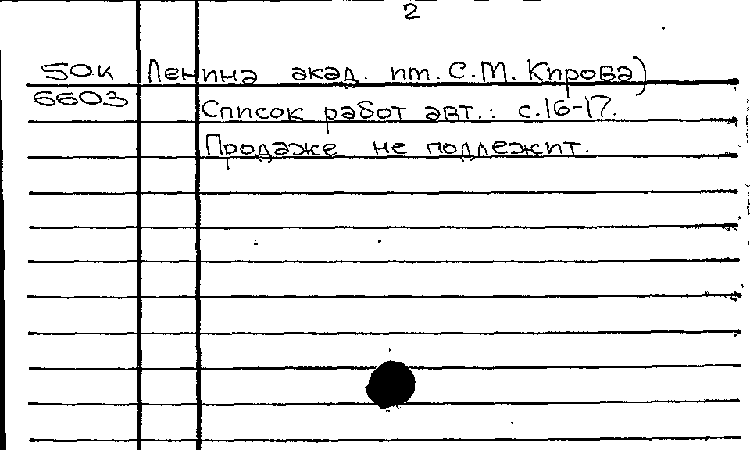 2
50к Ленина акад. им. С.М. Кирова)
6603 Список работ авт.: с.16-17.
Продаже не подлежит.